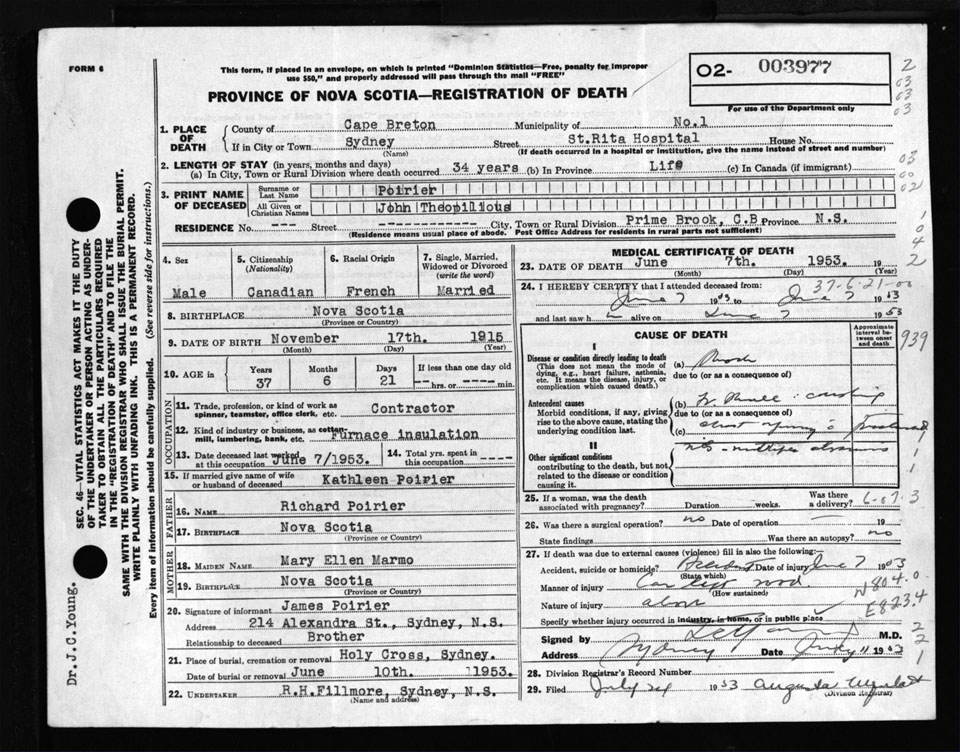 FORM 6
This form, if placed in an envelope, on which is printed "Dominion Statistics—Free, penalty for improper
use $50," and properly addressed will pass through the mail "FREE"
PROVINCE OF NOVA SCOTIA—REGISTRATION OF DEATH
02- 003977
For use of the Department only
2
03
03
03
03
00
02
1
0
4
2
SEC. 46—VITAL STATISTICS ACT MAKES IT THE DUTY
OF THE UNDERTAKER OR PERSON ACTING AS UNDER-
TAKER TO OBTAIN ALL THE PARTICULARS REQUIRED
IN THE "REGISTRATION OF DEATH" AND TO FILE THE
SAME WITH THE DIVISION REGISTRAR WHO SHALL ISSUE THE BURIAL PERMIT.
WRITE PLAINLY WITH UNFADING INK. THIS IS A PERMANENT RECORD.
Every item of information should be carefully supplied. (See reverse side for instructions.)
Dr. J.C. Young.
1. PLACE OF DEATH
County of Cape Breton Municipality of No.1
If in City or Town Sydney Street St.Rita Hospital House No.
(Name) (If death occurred in a hospital or institution, give the name instead of street and number)
2. LENGTH OF STAY (in years, months and days)
(a) In City, Town or Rural Division where death occurred 34 years (b) In Province Life (c) In Canada (if immigrant)
3. PRINT NAME OF DECEASED
Surname or Last Name Poirier
All Given or Christian Names John Theopilious
RESIDENCE No. --- Street ---- City, Town or Rural Division Prime Brook, C.B Province N.S.
(Residence means usual place of abode. Post Office Address for residents in rural parts not sufficient)
4. Sex
Male
5. Citizenship
(Nationality)
Canadian
6. Racial Origin
French
7. Single, Married,
Widowed or Divorced
(write the word)
Married
8. BIRTHPLACE Nova Scotia
(Province or Country)
9. DATE OF BIRTH November 17th. 1915
(Month) (Day) (Year)
10. AGE in
Years 37
Months 6
Days 21
If less than one day old
--- hrs. or ---- min.
OCCUPATION
11. Trade, profession, or kind of work as
spinner, teamster, office clerk, etc. Contractor
12. Kind of industry or business, as cotton-
mill, lumbering, bank, etc. Furnace insulation
13. Date deceased last worked
at this occupation June 7/1953.
14. Total yrs. spent in
this occupation ----
15. If married give name of wife
or husband of deceased Kathleen Poirier
FATHER
16. NAME Richard Poirier
17. BIRTHPLACE Nova Scotia
(Province or Country)
MOTHER
18. MAIDEN NAME Mary Ellen Marmo
19. BIRTHPLACE Nova Scotia
(Province or Country)
20. Signature of informant James Poirier
Address 214 Alexandra St., Sydney, N.S.
Relationship to deceased Brother
21. Place of burial, cremation or removal Holy Cross, Sydney.
Date of burial or removal June 10th. 1953.
22. UNDERTAKER R.H.Fillmore, Sydney, N.S.
(Name and address)
MEDICAL CERTIFICATE OF DEATH
23. DATE OF DEATH June 7th. 1953. 19
(Month) (Day) (Year)
24. I HEREBY CERTIFY that I attended deceased from:
37-6-21-00
June 7 1953 to June 7 1953
and last saw h alive on June 7 1953
CAUSE OF DEATH
Approximate
interval be-
tween onset
and death
939
I
Disease or condition directly leading to death
(This does not mean the mode of
dying, e.g., heart failure, asthenia,
etc. It means the disease, injury, or
complication which caused death.)
(a) Shock
due to (or as a consequence of)
Antecedent causes
Morbid conditions, if any, giving
rise to the above cause, stating the
underlying condition last.
(b) crushing
due to (or as a consequence of)
(c)
II
Other significant conditions
contributing to the death, but not
related to the disease or condition
causing it.
multiple abrasions
25. If a woman, was the death
associated with pregnancy? Duration weeks. Was there
a delivery?
6-07-3
26. Was there a surgical operation? no Date of operation 19
State findings Was there an autopsy? no
27. If death was due to external causes (violence) fill in also the following:—
Accident, suicide or homicide? Accident Date of injury June 7 1953
(State which)
Manner of injury Car left road
(How sustained)
N804.0
Nature of injury above
E823.4
Specify whether injury occurred in industry, in home, or in public place
Signed by M.D.
Address Sydney Date July 11 1953
28. Division Registrar's Record Number
29. Filed July 24 1953 Augusta
(Division Registrar)
2
2
1